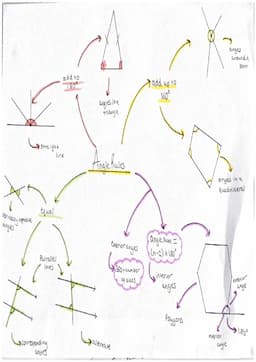 angles
around a
point
add up to
180°
add up to
360°
angles in a
triangle
straight
line
angles in a
quadrilateral
Angle Rules
equal
vertically opposite
angles
Parallel
lines
exterior angles
angle sum =
(n-2) x 180°
interior
angles
Polygons
exterior
angle
interior
angle
180°
corresponding
angles
alternate